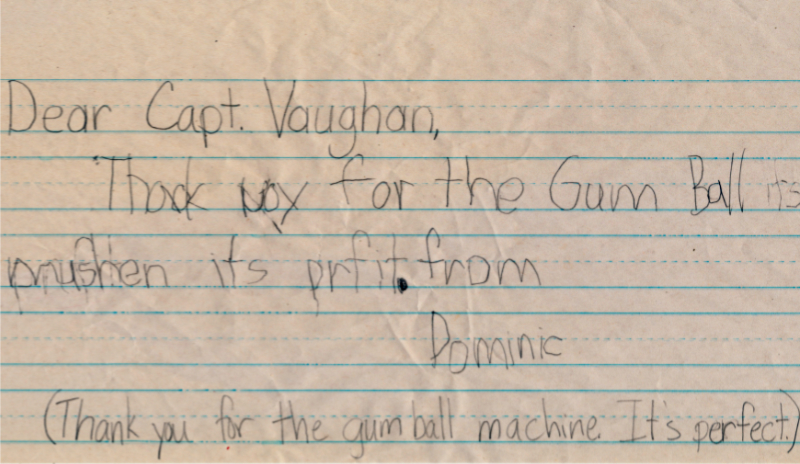 Dear Capt. Vaughan,
Thack noy for the Gum Ball its
mushen its prfit. from
Dominic
(Thank you for the gum ball machine. It's perfect.)